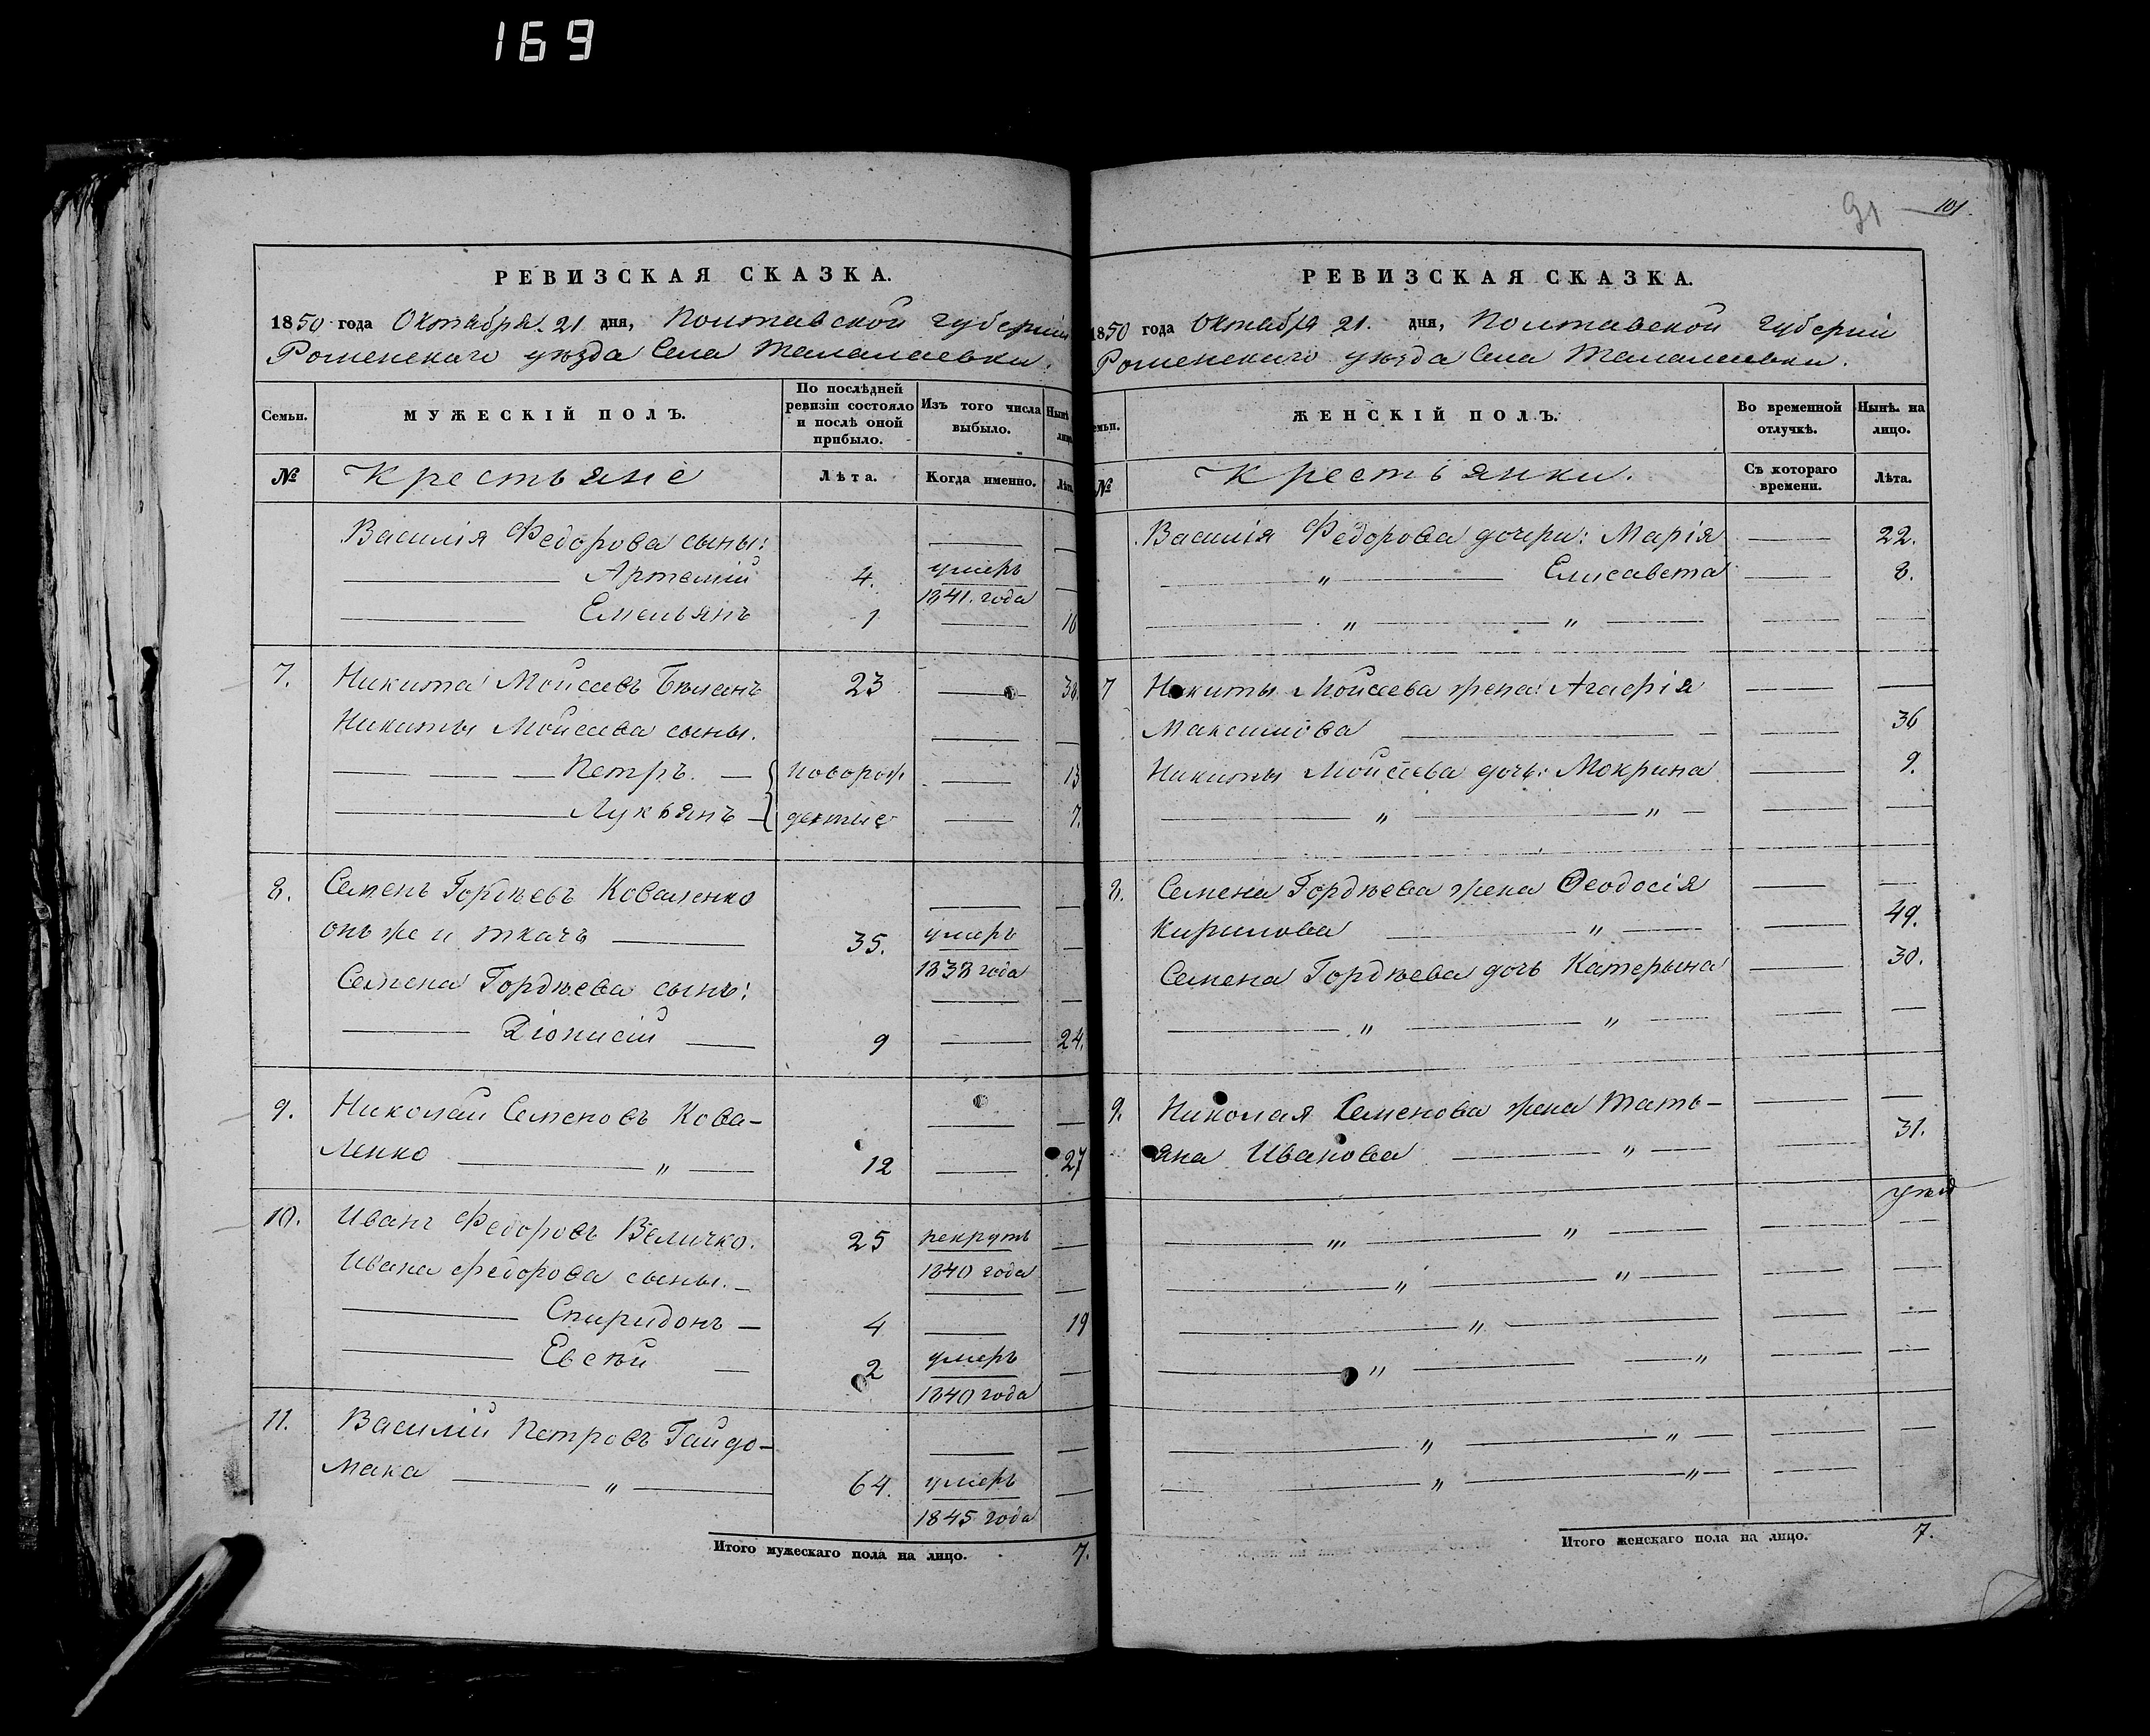 169
РЕВИЗСКАЯ СКАЗКА.
1850 года Октября 21 дня, Полтавской губерніи
Роменскаго уѣзда Села Талалаевки.
Семьи.
МУЖЕСКІЙ ПОЛЪ.
По послѣдней ревизіи состояло и послѣ оной прибыло.
Изъ того числа выбыло.
Нынѣ
№ Крестьяне Лѣта. Когда именно. Лѣта
Василія Федорова сыны:
Артемій 4. умеръ 1841. года
Емельянъ 1 16
7. Никита Мойсеевъ Бѣланъ 23 38
Никиты Мойсеева сыны.
Петръ. новорож 13
Лукьянъ денные 7.
8. Семенъ Гордѣевъ Коваленко
онъ же и ткачъ 35. умеръ 1838 года
Семена Гордѣева сынъ:
Діонисій 9 24.
9. Николай Семеновъ Кова-
ленко " 12 27
10. Иванъ Федоровъ Величко. 25 рекрутъ 1840 года
Ивана Федорова сыны.
Спиридонъ 4 19
Евсѣй 2 умеръ 1840 года
11. Василій Петровъ Гайдо-
мака " 64. умеръ 1845 года
Итого мужескаго пола на лицо. 7.
91 101.
РЕВИЗСКАЯ СКАЗКА.
1850 года Октября 21. дня, Полтавской губерніи
Роменскаго уѣзда Села Талалаевки.
ЖЕНСКІЙ ПОЛЪ.
Во временной отлучкѣ.
Нынѣ на лицо.
№ Крестьянки. Съ котораго времени. Лѣта.
Василія Федорова дочери: Марія 22.
" Елисавета 8.
" "
7 Никиты Мойсеева жена: Агафія
Максимова 36
Никиты Мойсеева дочь: Мокрина 9.
" "
8. Семена Гордѣева жена Ѳеодосія
Кирилова " 49.
Семена Гордѣева дочь Катерына 30.
" "
9. Николая Семенова жена Тать-
яна Иванова " 31.
" "
" "
"
" "
" "
" "
Итого женскаго пола на лицо. 7.